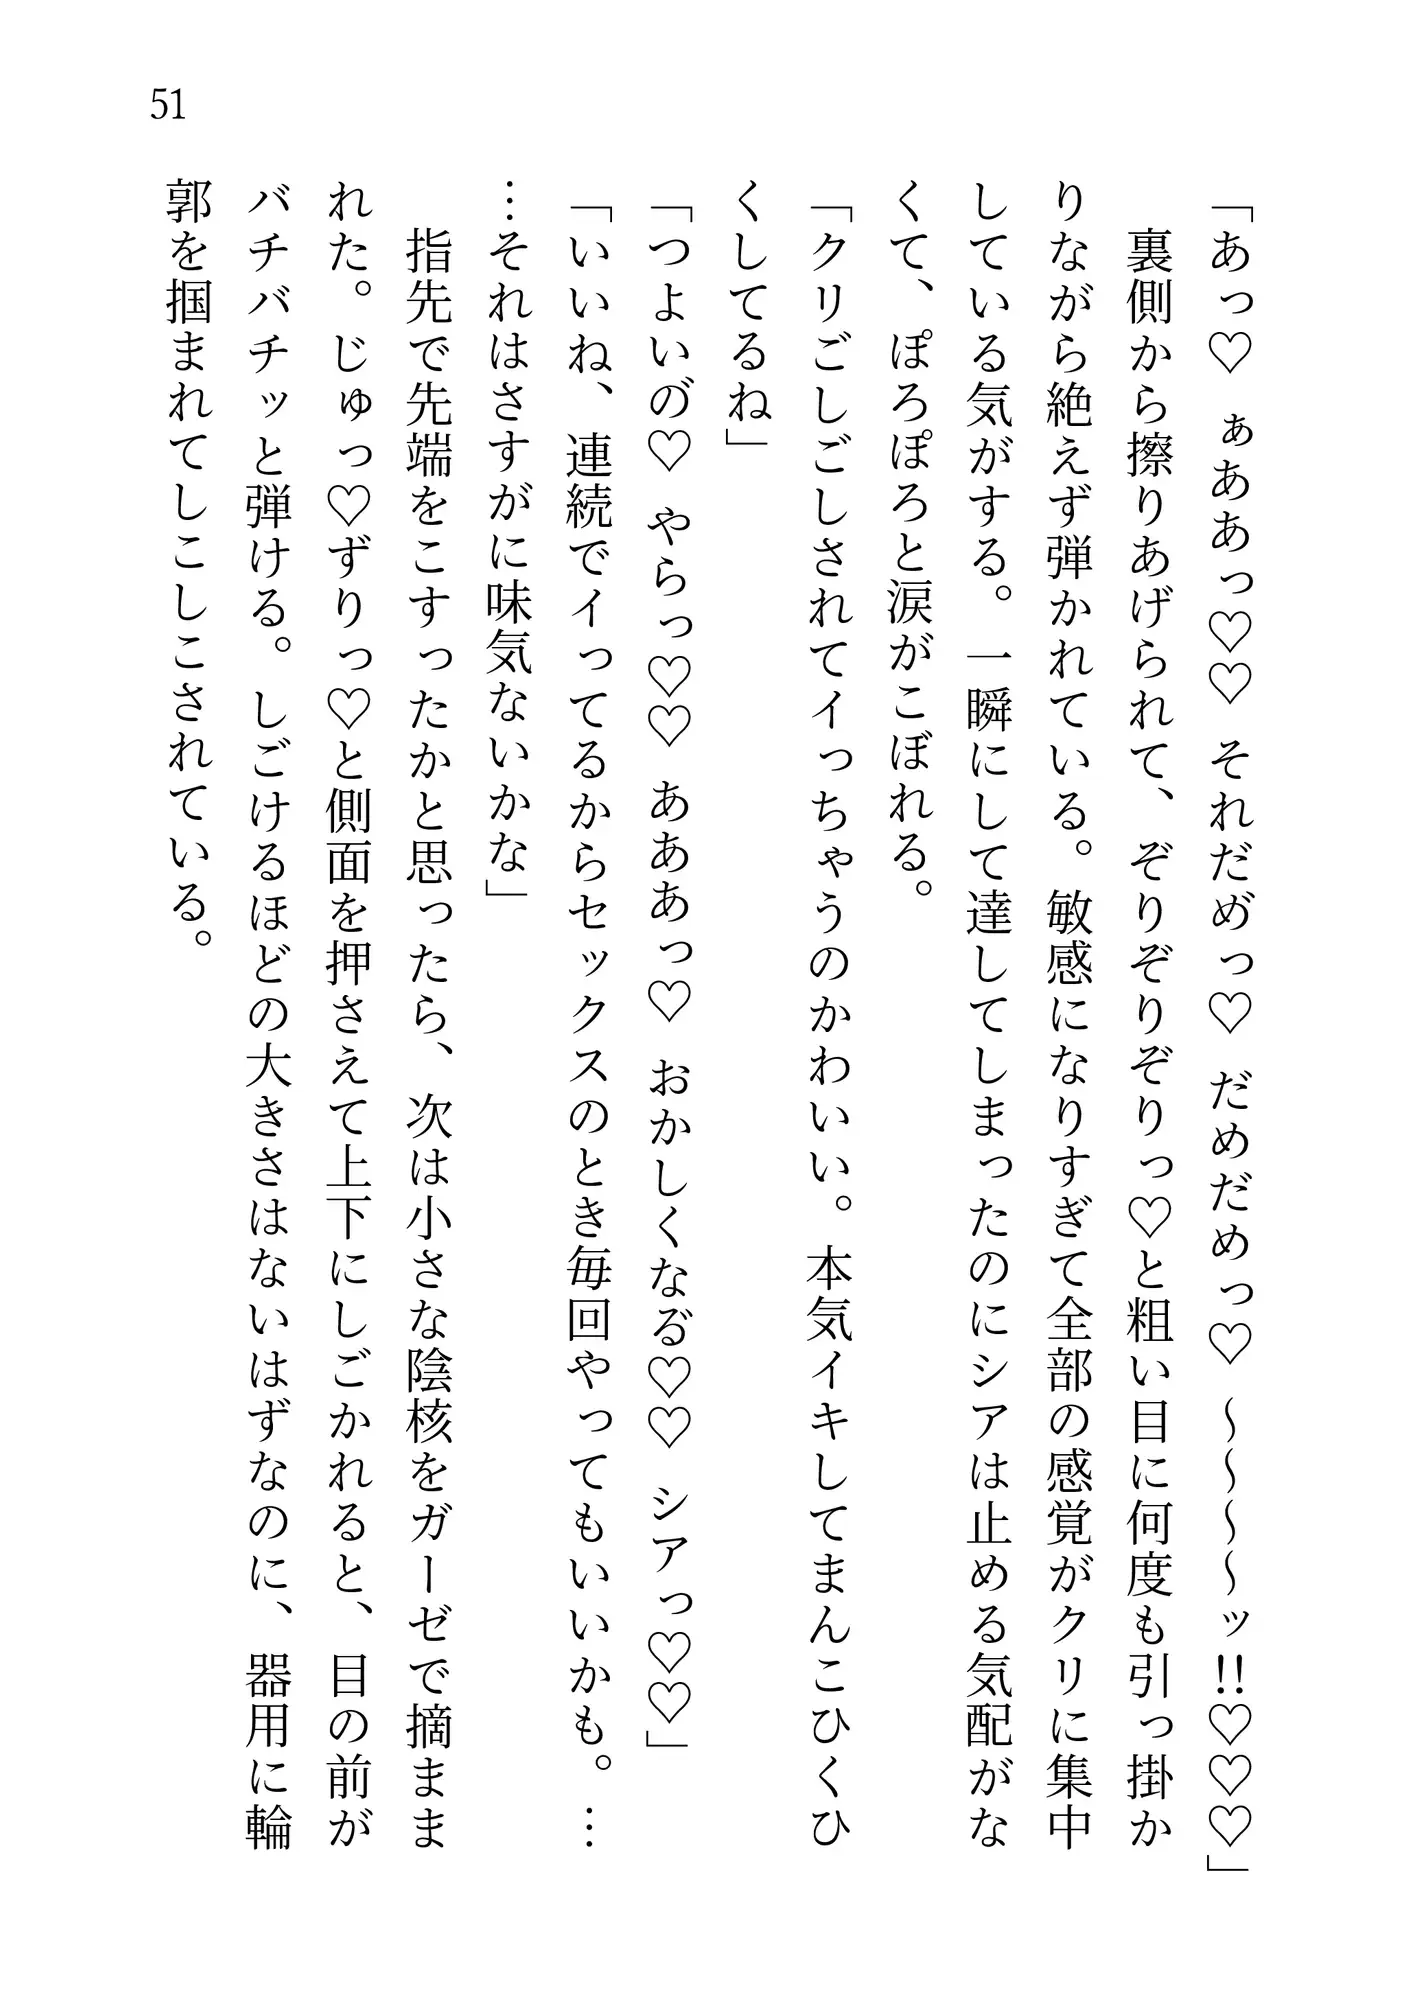 51
「あっ♡　ぁああっ♡♡　それだめ゛っ♡　だめだめっ♡　～～～～ッ!!♡♡♡」
　裏側から擦りあげられて、ぞりぞりぞりっ♡と粗い目に何度も引っ掛か
りながら絶えず弾かれている。敏感になりすぎて全部の感覚がクリに集中
している気がする。一瞬にして達してしまったのにシアは止める気配がな
くて、ぽろぽろと涙がこぼれる。
「クリごしごしされてイっちゃうのかわいい。本気イキしてまんこひくひ
くしてるね」
「つよいの゛♡　やらっ♡♡　あああっ♡　おかしくなる゛♡♡　シアっ♡♡」
「いいね、連続でイってるからセックスのとき毎回やってもいいかも。…
…それはさすがに味気ないかな」
　指先で先端をこすったかと思ったら、次は小さな陰核をガーゼで摘まま
れた。じゅっ♡ずりっ♡と側面を押さえて上下にしごかれると、目の前が
バチバチッと弾ける。しごけるほどの大きさはないはずなのに、器用に輪
郭を掴まれてしこしこされている。